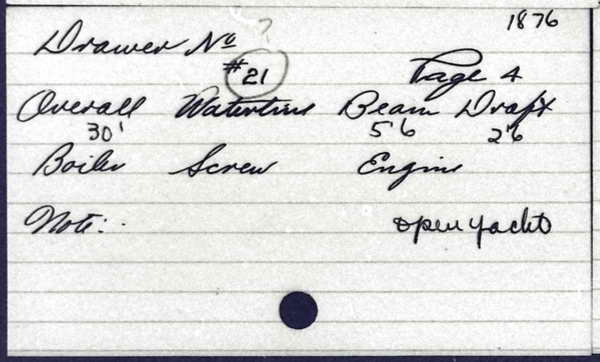 1876
Drawer No ?
#21
Page 4
Overall Waterline Beam Draft
30' 5'6 2'6
Boiler Screw Engine
Note: open yacht